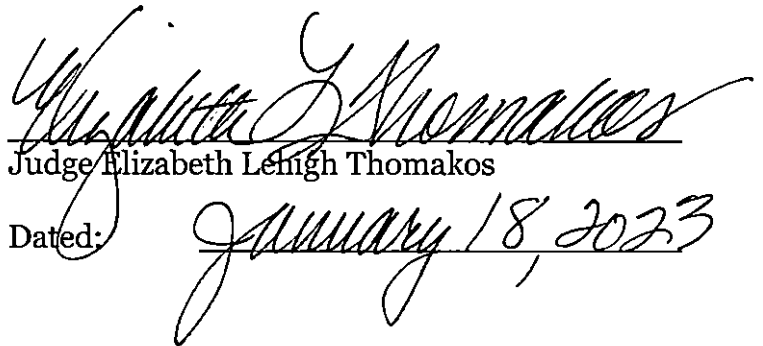 Elizabeth L Thomakos
Judge Elizabeth Lehigh Thomakos
Dated: January 18, 2023